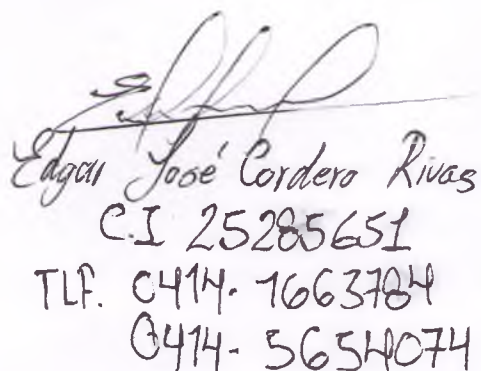 Edgar José Cordero Rivas
C.I 25285651
TLF. 0414. 1663784
0414- 5654074